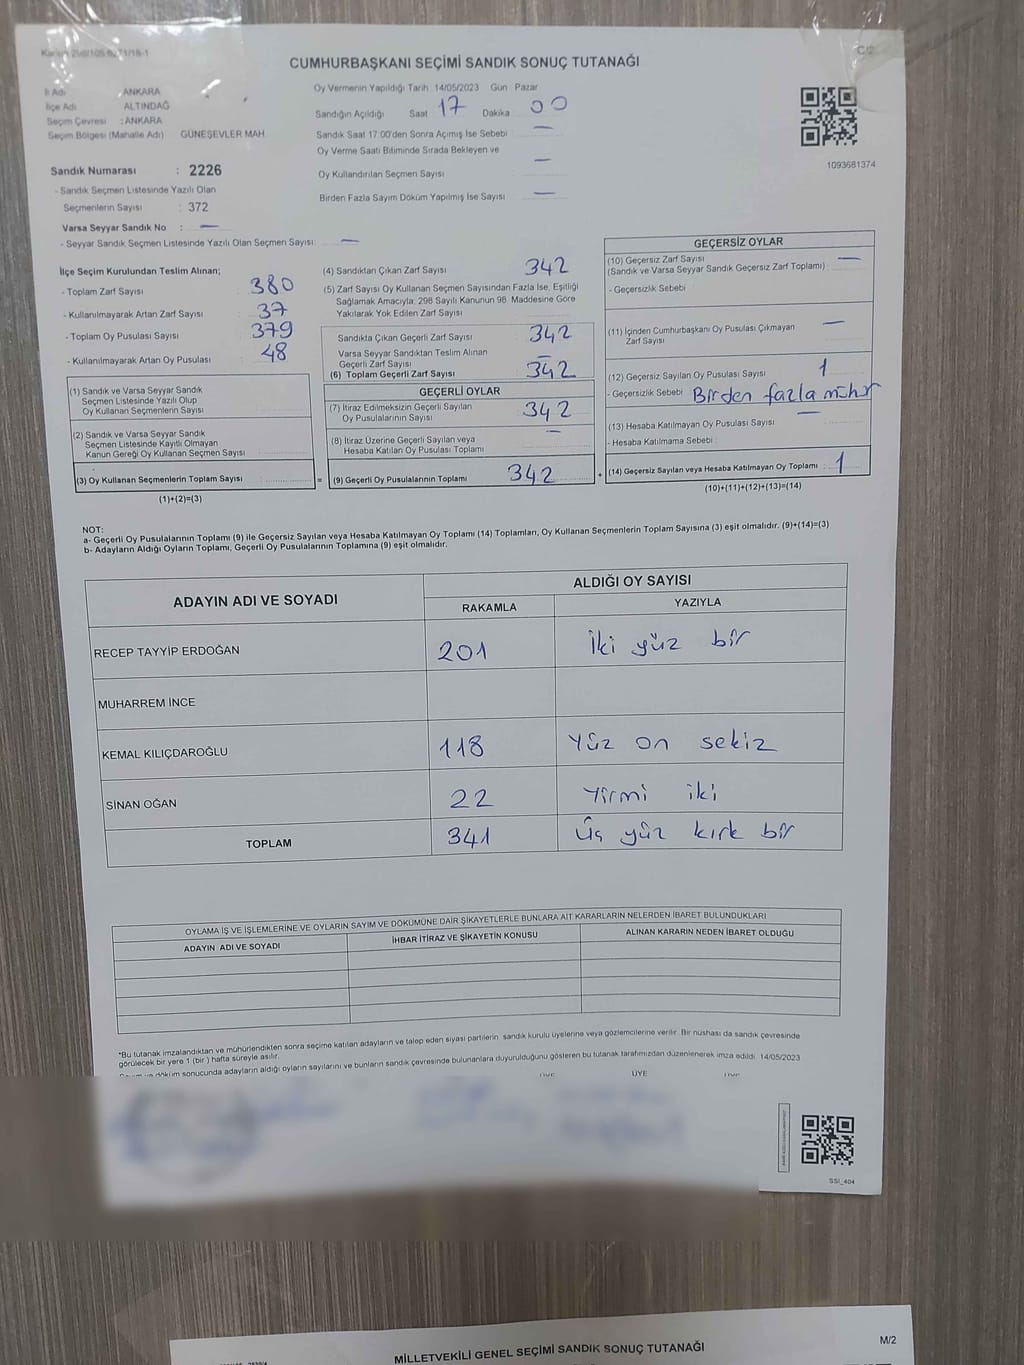 C/2
CUMHURBAŞKANI SEÇİMİ SANDIK SONUÇ TUTANAĞI
İl Adı : ANKARA
İlçe Adı : ALTINDAĞ
Seçim Çevresi : ANKARA
Seçim Bölgesi (Mahalle Adı) GÜNEŞEVLER MAH.
Oy Vermenin Yapıldığı Tarih 14/05/2023 Gün Pazar
Sandığın Açıldığı Saat 17 Dakika 00
Sandık Saat 17:00'den Sonra Açımış İse Sebebi —
Oy Verme Saati Bitiminde Sırada Bekleyen ve
Oy Kullandırılan Seçmen Sayısı —
Birden Fazla Sayım Döküm Yapılmış İse Sayısı —
1093681374
Sandık Numarası : 2226
- Sandık Seçmen Listesinde Yazılı Olan
Seçmenlerin Sayısı : 372
Varsa Seyyar Sandık No : —
- Seyyar Sandık Seçmen Listesinde Yazılı Olan Seçmen Sayısı: —
İlçe Seçim Kurulundan Teslim Alınan;
- Toplam Zarf Sayısı : 380
- Kullanılmayarak Artan Zarf Sayısı : 37
- Toplam Oy Pusulası Sayısı : 379
- Kullanılmayarak Artan Oy Pusulası : 48
(1) Sandık ve Varsa Seyyar Sandık
Seçmen Listesinde Yazılı Olup
Oy Kullanan Seçmenlerin Sayısı :
(2) Sandık ve Varsa Seyyar Sandık
Seçmen Listesinde Kayıtlı Olmayan
Kanun Gereği Oy Kullanan Seçmen Sayısı :
(3) Oy Kullanan Seçmenlerin Toplam Sayısı : =
(1)+(2)=(3)
(4) Sandıktan Çıkan Zarf Sayısı : 342
(5) Zarf Sayısı Oy Kullanan Seçmen Sayısından Fazla İse, Eşitliği
Sağlamak Amacıyla; 298 Sayılı Kanunun 98. Maddesine Göre
Yakılarak Yok Edilen Zarf Sayısı :
Sandıkta Çıkan Geçerli Zarf Sayısı : 342
Varsa Seyyar Sandıktan Teslim Alınan
Geçerli Zarf Sayısı : —
(6) Toplam Geçerli Zarf Sayısı : 342
GEÇERLİ OYLAR
(7) İtiraz Edilmeksizin Geçerli Sayılan
Oy Pusulasının Sayısı : 342
(8) İtiraz Üzerine Geçerli Sayılan veya
Hesaba Katılan Oy Pusulası Toplamı : —
(9) Geçerli Oy Pusulalarının Toplamı : 342 +
GEÇERSİZ OYLAR
(10) Geçersiz Zarf Sayısı
(Sandık ve Varsa Seyyar Sandık Geçersiz Zarf Toplamı) : —
- Geçersizlik Sebebi :
(11) İçinden Cumhurbaşkanı Oy Pusulası Çıkmayan
Zarf Sayısı : —
(12) Geçersiz Sayılan Oy Pusulası Sayısı : 1
- Geçersizlik Sebebi : Birden fazla mühür
(13) Hesaba Katılmayan Oy Pusulası Sayısı : —
- Hesaba Katılmama Sebebi :
(14) Geçersiz Sayılan veya Hesaba Katılmayan Oy Toplamı : 1
(10)+(11)+(12)+(13)=(14)
NOT:
a- Geçerli Oy Pusulalarının Toplamı (9) ile Geçersiz Sayılan veya Hesaba Katılmayan Oy Toplamı (14) Toplamları, Oy Kullanan Seçmenlerin Toplam Sayısına (3) eşit olmalıdır. (9)+(14)=(3)
b- Adayların Aldığı Oyların Toplamı, Geçerli Oy Pusulalarının Toplamına (9) eşit olmalıdır.
ADAYIN ADI VE SOYADI ALDIĞI OY SAYISI
RAKAMLA YAZIYLA
RECEP TAYYİP ERDOĞAN 201 İki yüz bir
MUHARREM İNCE
KEMAL KILIÇDAROĞLU 118 Yüz on sekiz
SİNAN OĞAN 22 Yirmi iki
TOPLAM 341 Üç yüz kırk bir
OYLAMA İŞ VE İŞLEMLERİNE VE OYLARIN SAYIM VE DÖKÜMÜNE DAİR ŞİKAYETLERLE BUNLARA AİT KARARLARIN NELERDEN İBARET BULUNDUKLARI
ADAYIN ADI VE SOYADI İHBAR İTİRAZ VE ŞİKAYETİN KONUSU ALINAN KARARIN NEDEN İBARET OLDUĞU
*Bu tutanak imzalandıktan ve mühürlendikten sonra seçime katılan adayların ve talep eden siyasi partilerin sandık kurulu üyelerine veya gözlemcilerine verilir. Bir nüshası da sandık çevresinde
görülecek bir yere 1 (bir ) hafta süreyle asılır.
döküm sonucunda adayların aldığı oyların sayılarını ve bunların sandık çevresinde bulunanlara duyurulduğunu gösteren bu tutanak tarafımızdan düzenlenerek imza edildi. 14/05/2023
ÜYE ÜYE ÜYE
SSI_404
M/2
MİLLETVEKİLİ GENEL SEÇİMİ SANDIK SONUÇ TUTANAĞI